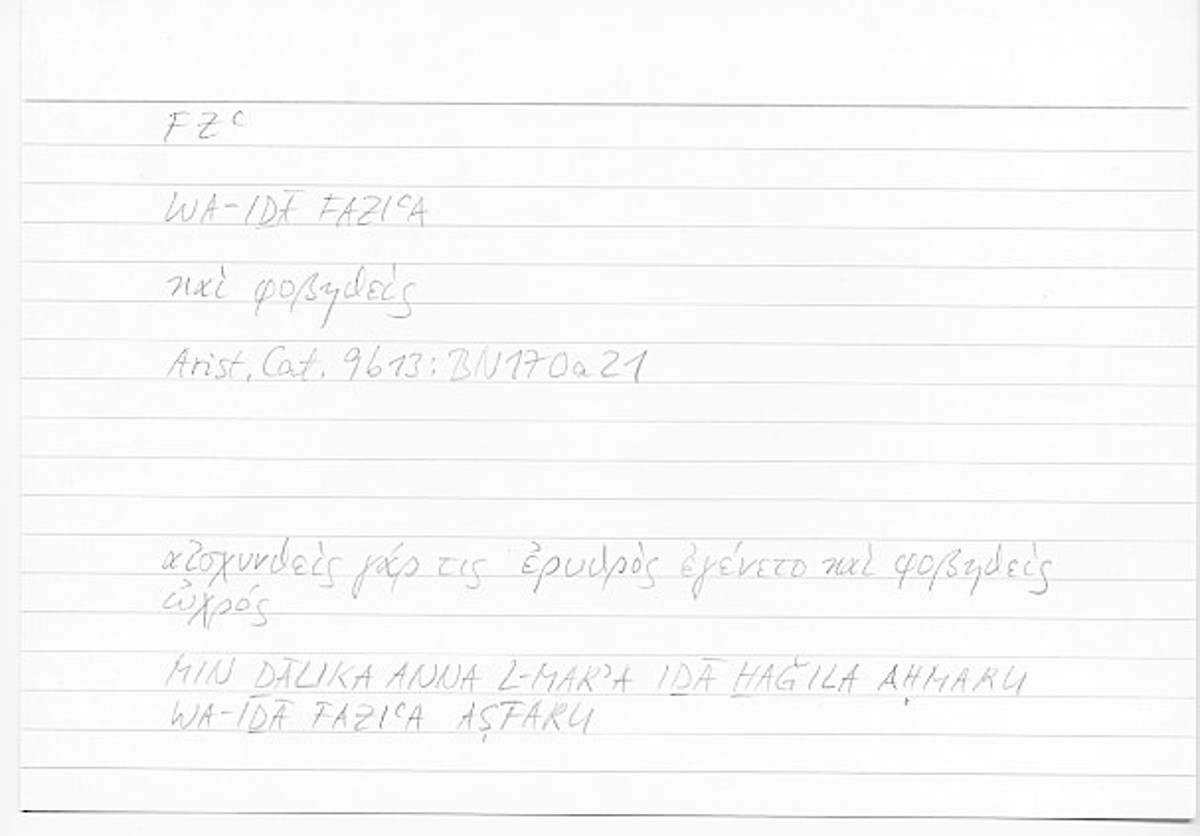 FZʿ
WA-IḎĀ FAZIʿA
καὶ φοβηθείς
Arist., Cat. 9b13 : BN170a21
αἰσχυνθεὶς γάρ τις ἐρυθρὸς ἐγένετο καὶ φοβηθεὶς
ὠχρός
MIN ḎĀLIKA ANNA L-MARʾA IḎĀ ḪAǦILA AḤMARU
WA-IḎĀ FAZIʿA AṢFARU